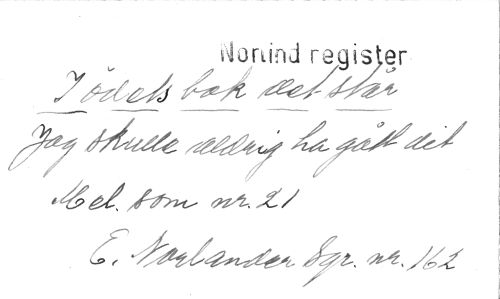 Norlind register
I ödets bok det står
Jag skulle aldrig ha gått dit
Mel. som nr. 21
E. Norlander Sgr. nr. 162